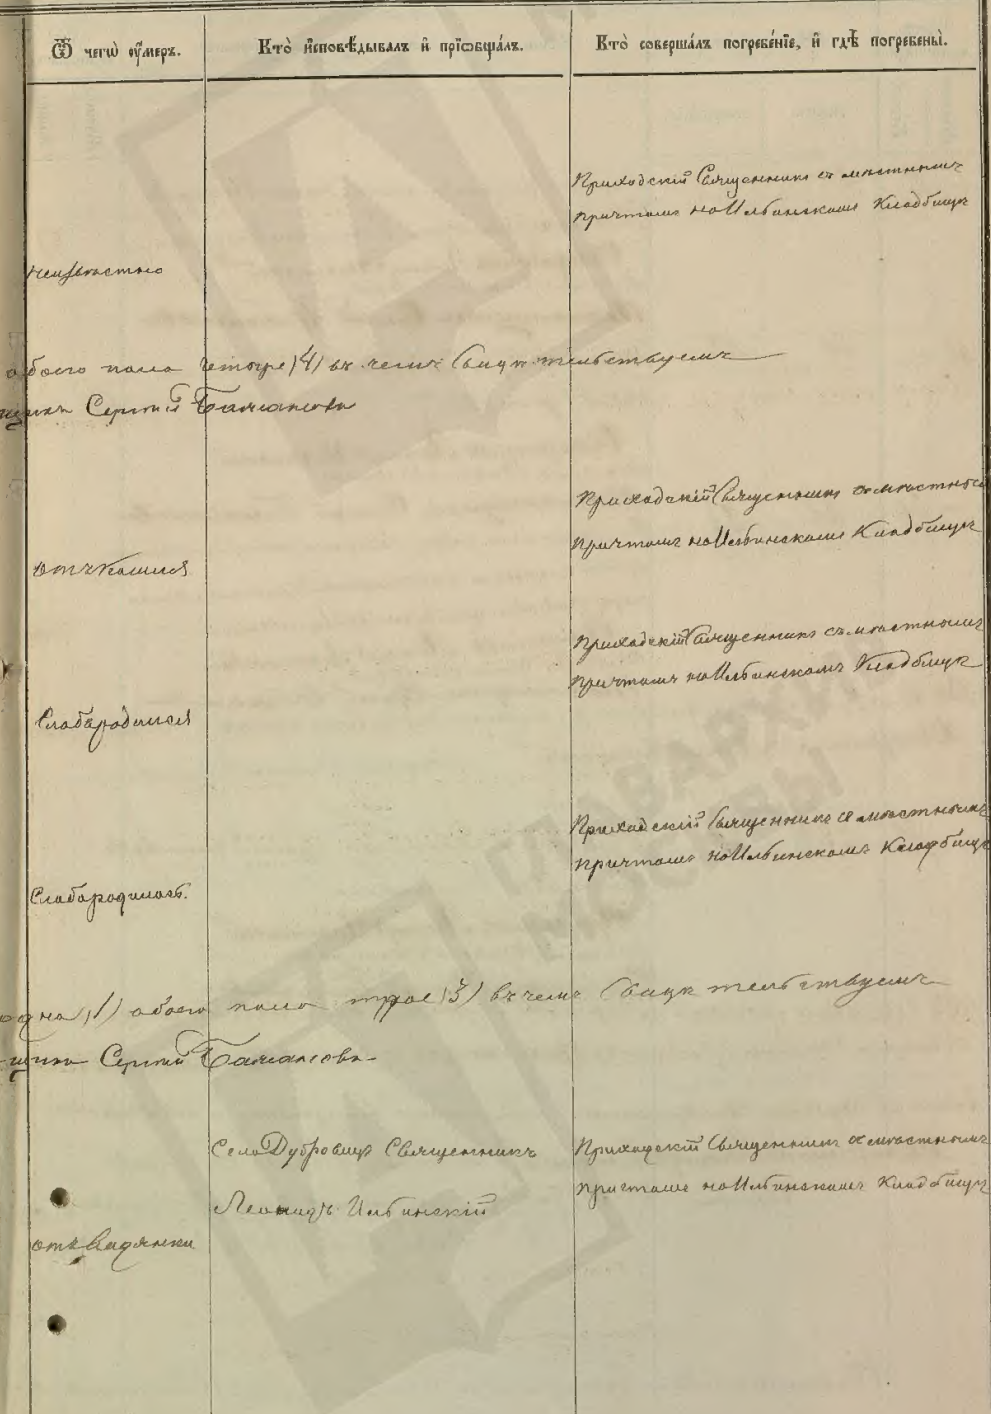 Ѿ чегѡ оумеръ.
Кто̀ и҆сповѣ́дывалъ и҆ прїѡбща́лъ.
Кто̀ соверша́лъ погребе́нїе, и҆ гдѣ̀ погребены̀.
Приходскій Священникъ съ мѣстнымъ
причтомъ на Ильинскомъ Кладбищѣ
неизвѣстно
обоего пола четыре (4) въ чемъ свидѣтельствуемъ
Сергій
Приходскій Священникъ съ мѣстнымъ
причтомъ на Ильинскомъ Кладбищѣ
отъ Кашля
Приходскій Священникъ съ мѣстнымъ
причтомъ на Ильинскомъ Кладбищѣ
Слабародился
Приходскій Священникъ съ мѣстнымъ
причтомъ на Ильинскомъ Кладбищѣ
Слабародилась.
одна (1) обоего пола трое (3) въ чемъ свидѣтельствуемъ
Сергій
Села Дубровицъ Священникъ
Леонидъ Ильинскій
Приходскій Священникъ съ мѣстнымъ
причтомъ на Ильинскомъ Кладбищѣ
отъ Вадянки